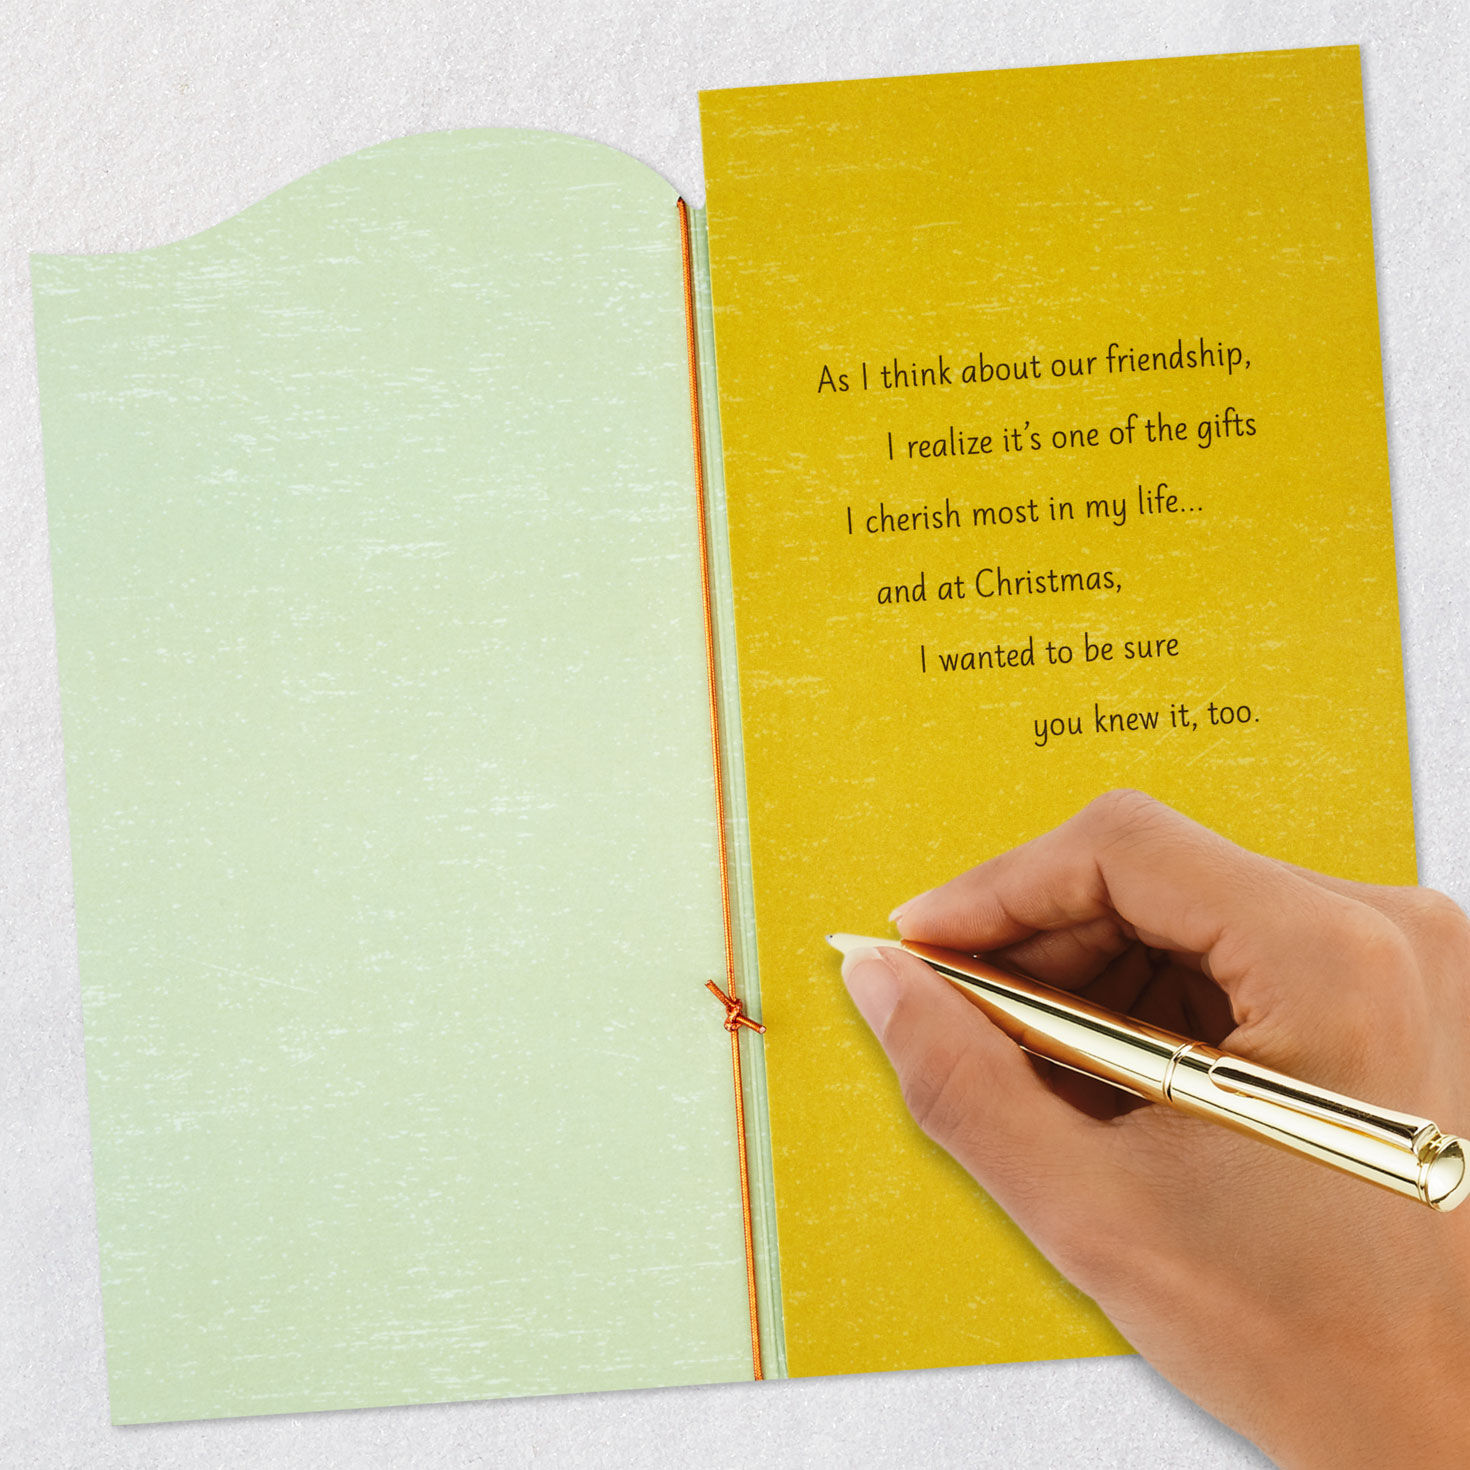 As I think about our friendship,
I realize it’s one of the gifts
I cherish most in my life...
and at Christmas,
I wanted to be sure
you knew it, too.